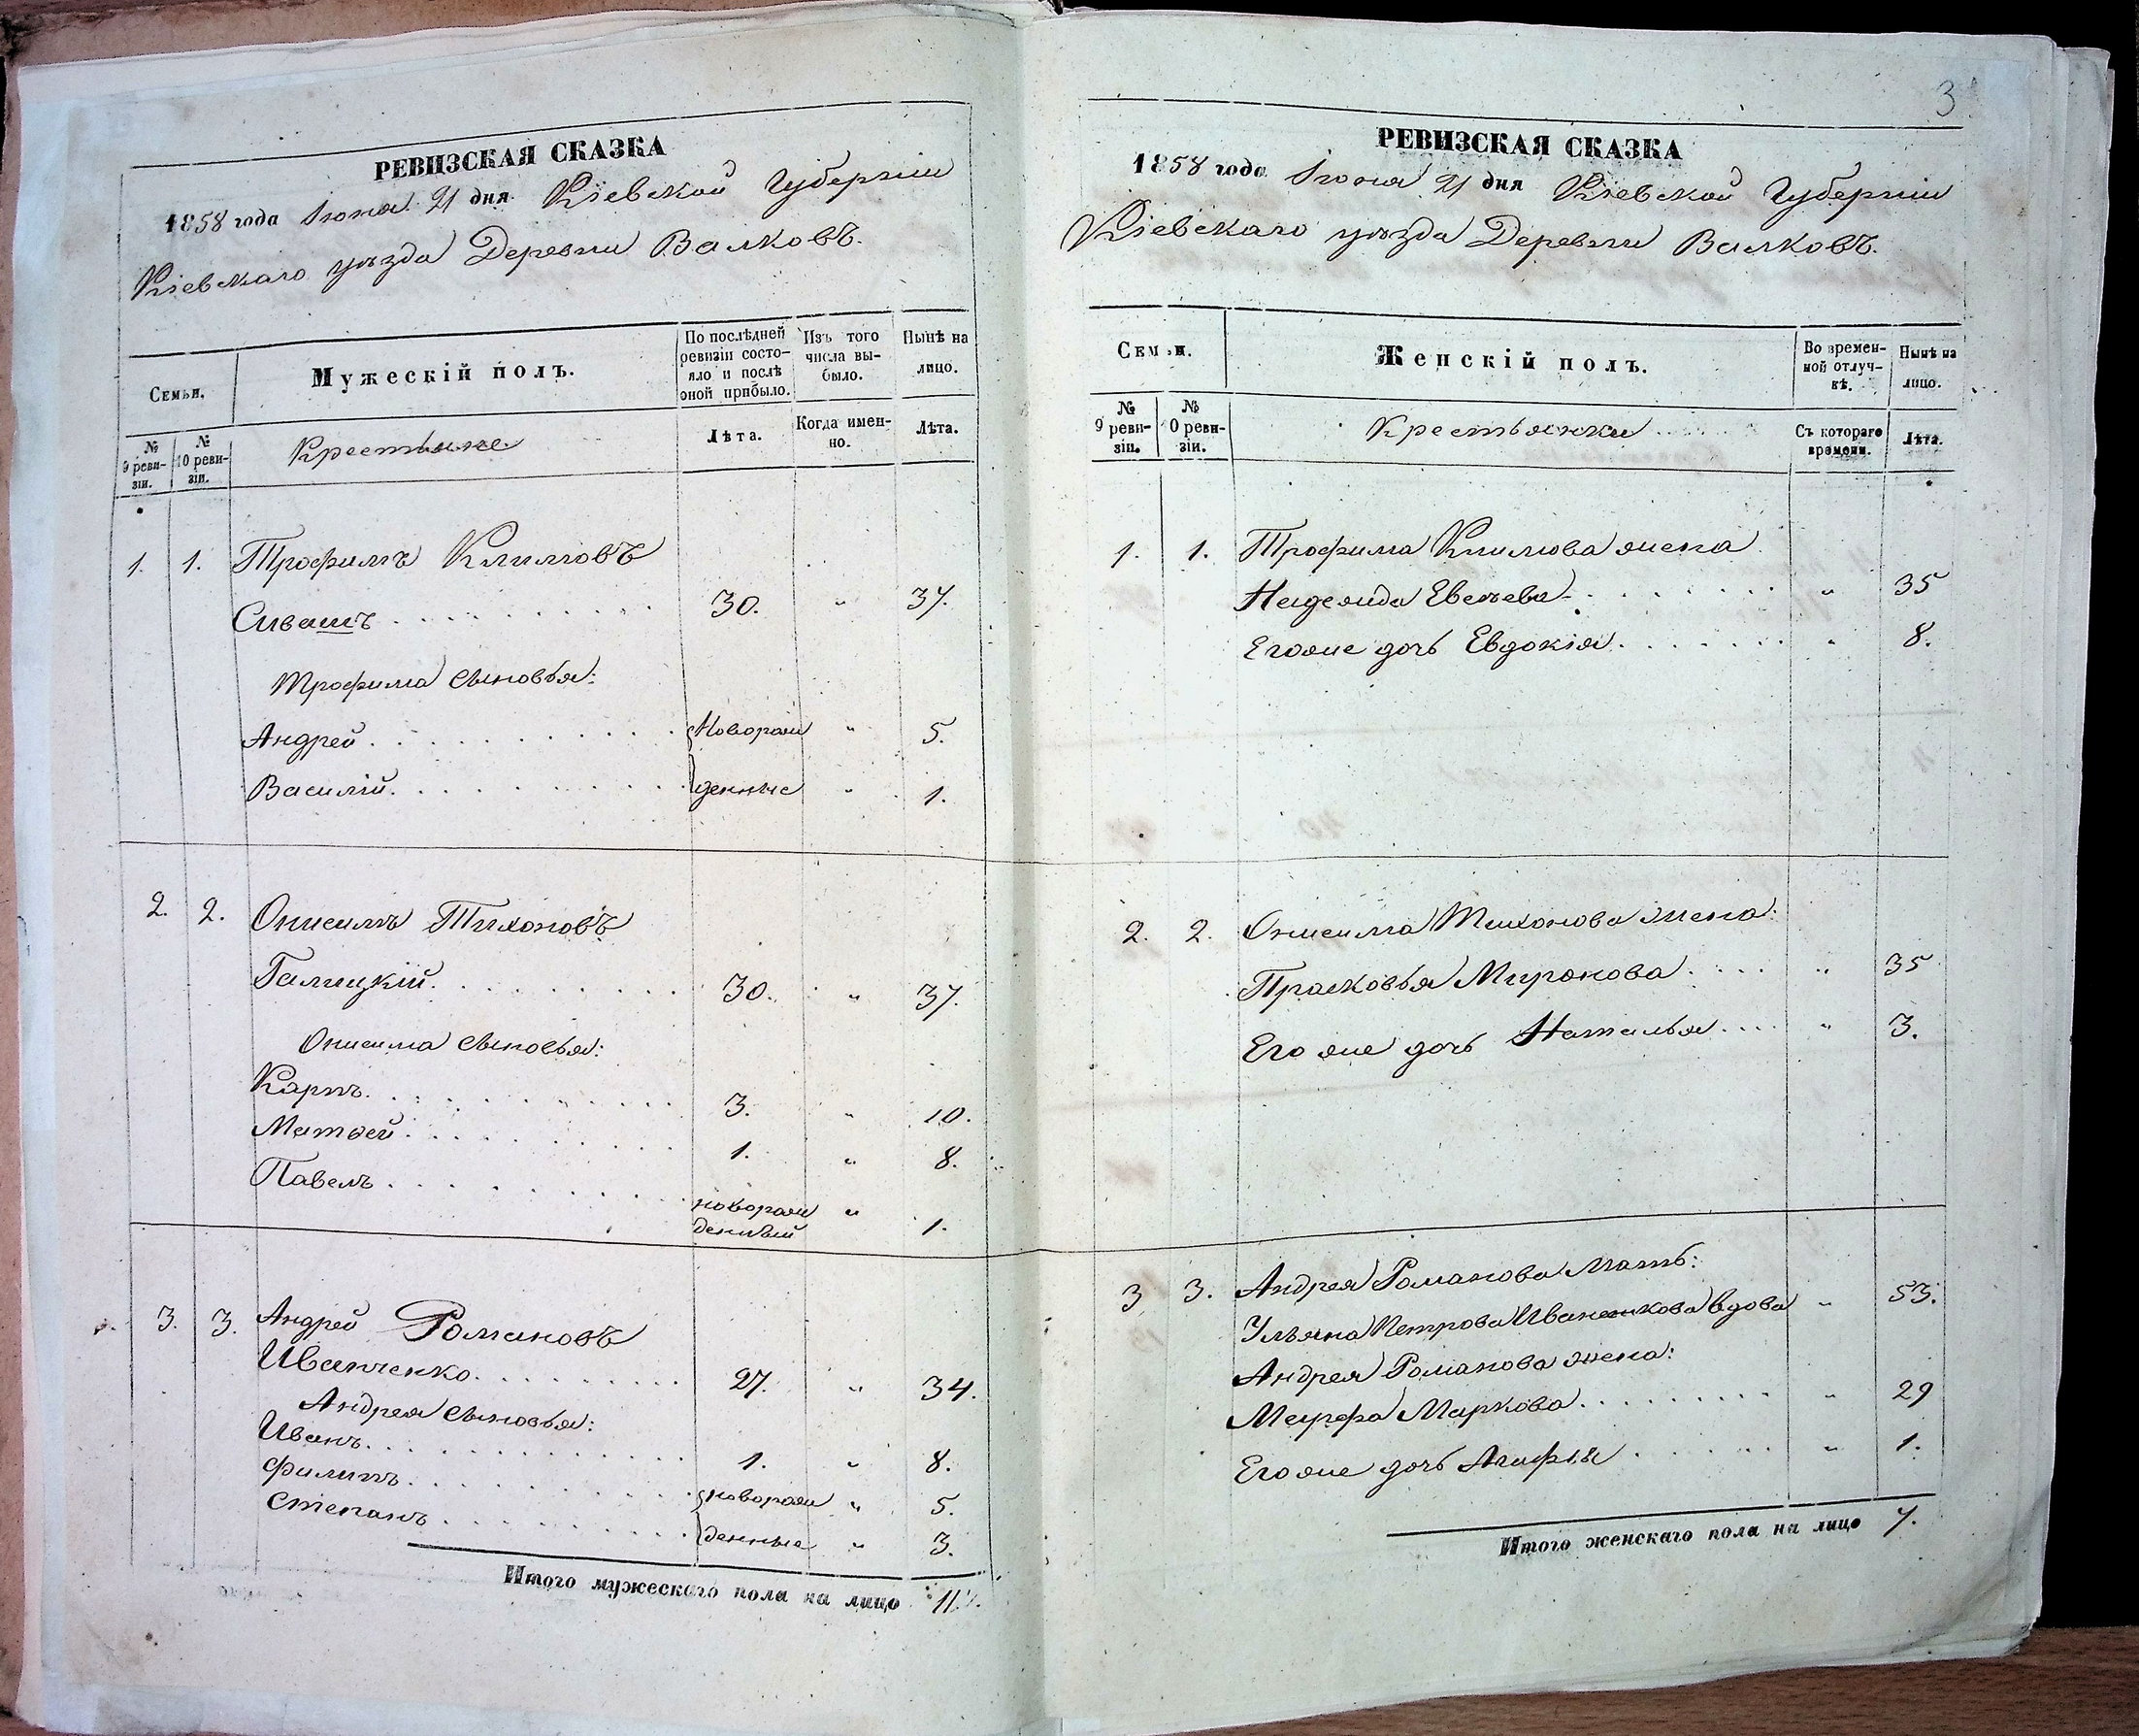 РЕВИЗСКАЯ СКАЗКА
1858 года Iюня 21 дня Кіевской Губерніи
Кіевскаго уѣзда Деревни Валковъ.
Семьи.
Мужескій полъ.
По послѣдней ревизіи состояло и послѣ оной прибыло.
Изъ того числа выбыло.
Нынѣ на лицо.
№ 9 ревизіи.
№ 10 ревизіи.
Крестьяне
Лѣта.
Когда именно.
Лѣта.
1. 1. Трофимъ Климовъ
Сивашъ 30. " 37.
Трофима сыновья:
Андрей новорож " 5.
Василій денные " 1.
2. 2. Онисимъ Тихоновъ
Галицкій 30. " 37.
Онисима сыновья:
Карпъ 3. " 10.
Матвей 1. " 8.
Павелъ новорож
денный " 1.
3. 3. Андрей Романовъ
Иванченко 27. " 34.
Андрея сыновья:
Иванъ 1. " 8.
Филипъ новорож " 5.
Степанъ денные " 3.
Итого мужескаго пола на лицо 11.
3
РЕВИЗСКАЯ СКАЗКА
1858 года Iюня 21 дня Кіевской Губерніи
Кіевскаго уѣзда Деревни Валковъ.
Семьи.
Женскій полъ.
Во временной отлучкѣ.
Нынѣ на лицо.
№ 9 ревизіи.
№ 0 ревизіи.
Крестьянки
Съ котораго времени.
Лѣта.
1. 1. Трофима Климова жена
Надежда " 35
Его же дочь Евдокія " 8.
2. 2. Онисима Тихонова жена:
Прасковья Миронова " 35
Его же дочь Наталья " 3.
3 3. Андрея Романова Мать:
Ульяна Петрова Иваненкова вдова " 53.
Андрея Романова жена:
Марфа Маркова " 29
Его же дочь Агафія " 1.
Итого женскаго пола на лицо 7.